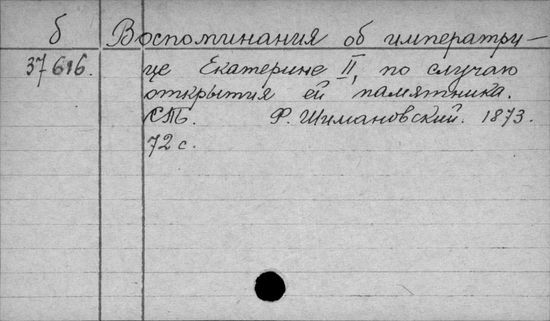 б Воспоминания об императри-
37616. це Екатерине II, по случаю
открытия ей памятника.
СПб. Ф. Шимановский. 1873.
72 с.